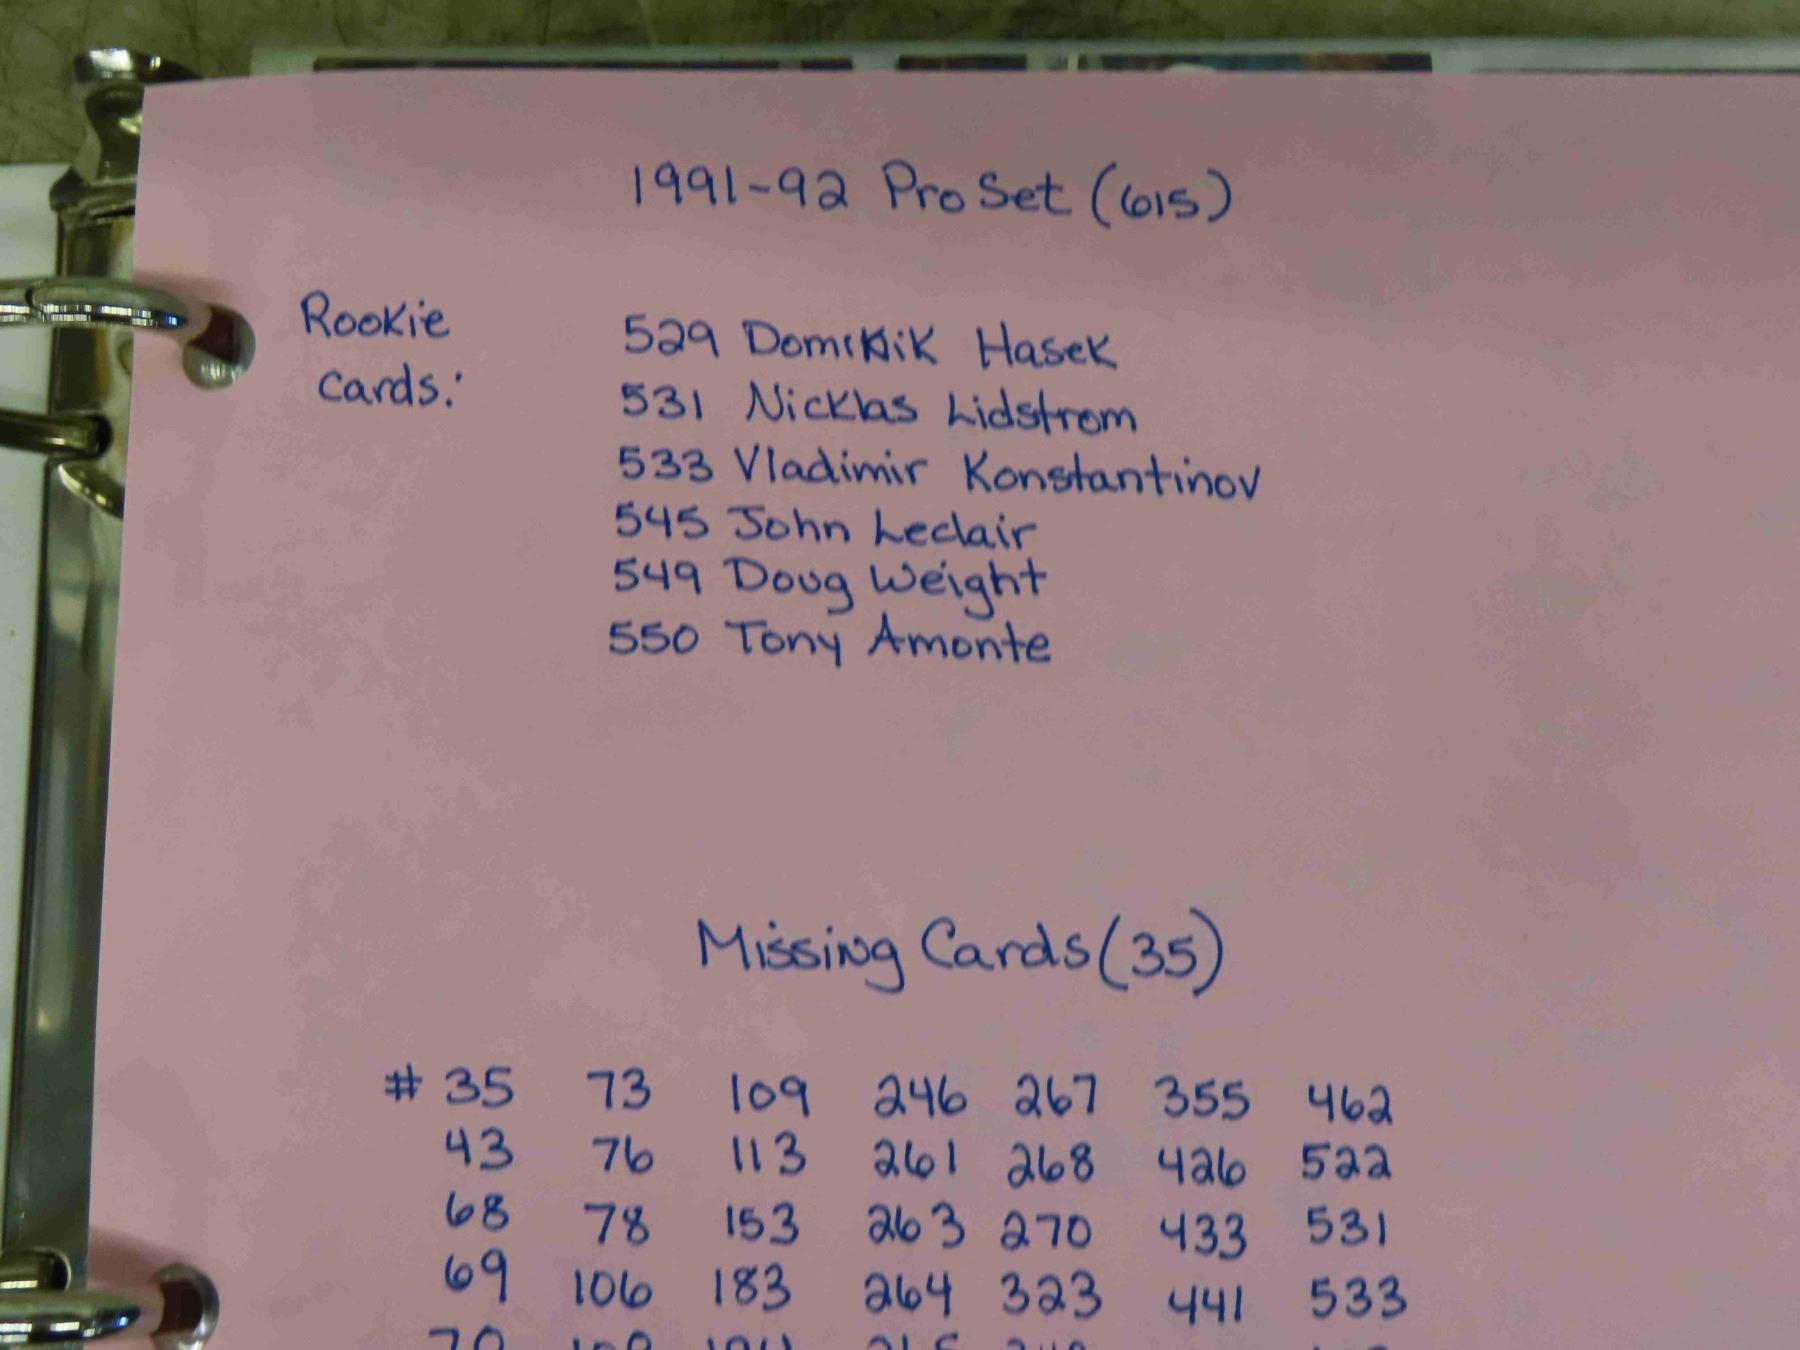 1991-92 Pro Set (615)
Rookie
cards:
529 Dominik Hasek
531 Nicklas Lidstrom
533 Vladimir Konstantinov
545 John Leclair
549 Doug Weight
550 Tony Amonte
Missing Cards (35)
# 35 73 109 246 267 355 462
43 76 113 261 268 426 522
68 78 153 263 270 433 531
69 106 183 264 323 441 533